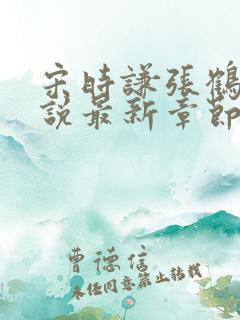 宋時謙張鶴
說最新章節
曹德信
未经同意禁止转载